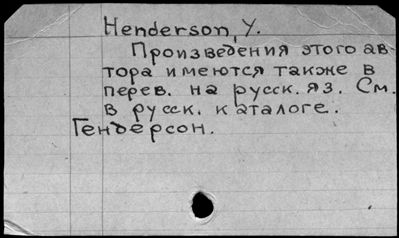 Henderson, Y.
Произведения этого ав-
тора имеются также в
перев. на русск. яз. См.
в русск. каталоге.
Гендерсон.